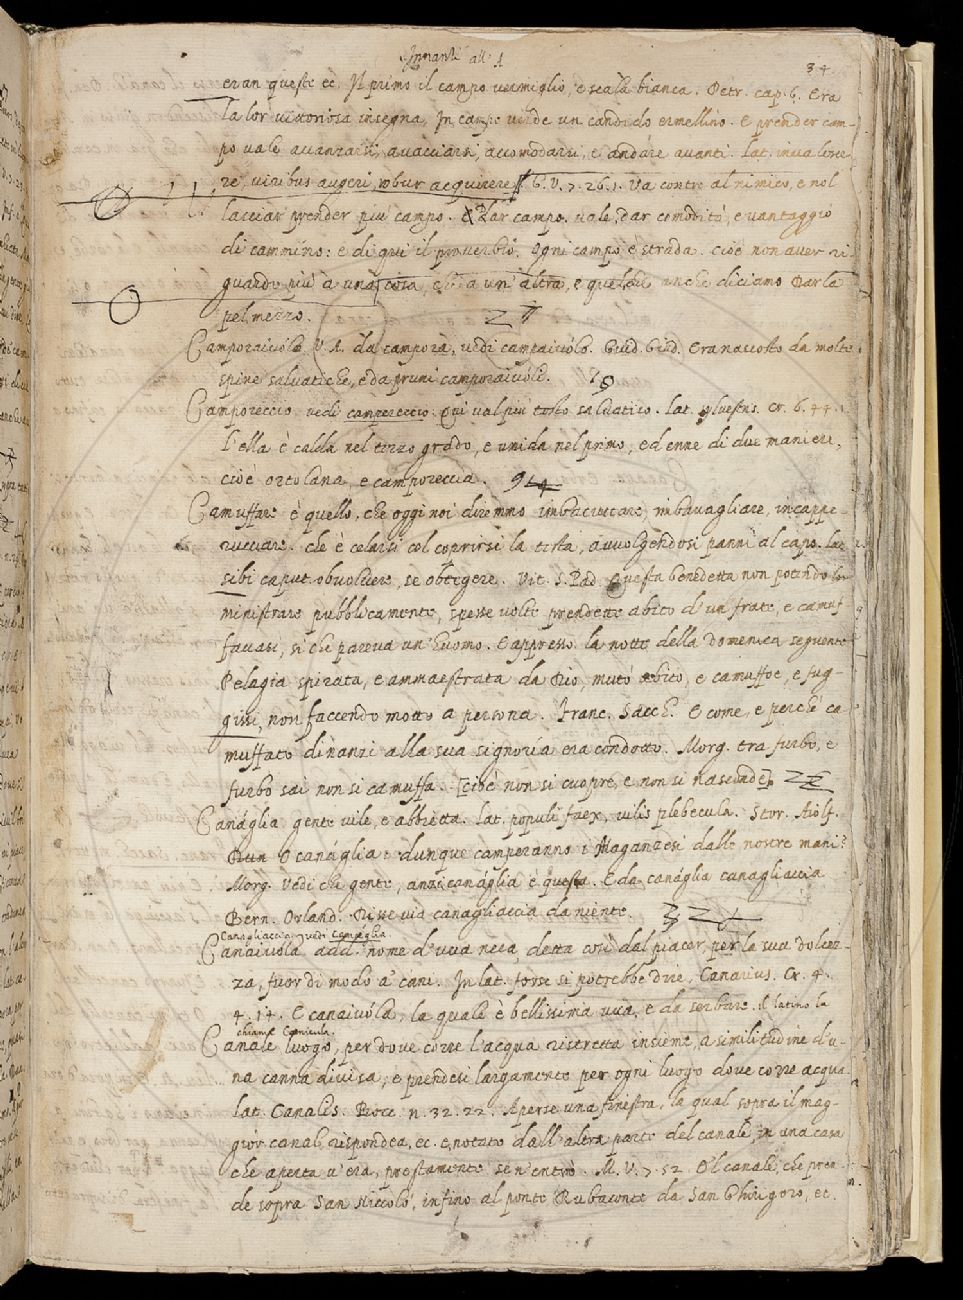 Innanti all' 1
34
eran queste ec. Il primo il campo vermiglio, e scala bianca. Petr. cap. 6. Era
la lor vittoriosa insegna, In campo verde un candido ermellino. E prender cam-
po vale avanzarsi, avacciarsi, accomodarsi, e andare avanti. Lat. invalesce-
re, viribus augeri, robur acquirere G. V. 7. 26. 1. Va contro al nimico, e nol
lasciar prender più campo. Dar campo. vale, dar comodità, e vantaggio
di cammino: e di qui il proverbio. Ogni campo è strada. cioè non aver ri-
guardo più à una cosa, che a un'altra, e quel che anche diciamo Darla
pel mezzo.
Camporaivólo V. A. da camporà, vedi campaivólo. Guid. Giud. Era nascosto da molte
spine salvatiche, e da pruni camporaivóli.
Camporeccio vedi campereccio. Qui val più tosto salvatico. Lat. sylvestris. Cr. 6. 44. 1.
L'ella è calda nel terzo grado, e umida nel primo, ed enne di due maniere,
cioè ortolana, e camporeccia.
Camuffare è quello, che oggi noi diremmo imbacuccare imbavagliare, incappe-
rucciare. che è celarsi col coprirsi la testa, avvolgendosi panni al capo. Lat.
sibi caput obvolvere, se obtegere. Vit. S. Pad. Questa benedetta non potendo lor
ministrare pubblicamente, spesse volte prendette abito d'un frate, e camuf-
favasi, si che pareva un' huomo. E appresso. la notte della domenica seguente
Pelagia spirata, e ammaestrata da Dio, mutò abito, e camuffoe, e fug-
gissi, non faccendo motto a persona. Franc. Sacch. E come, e perchè ca-
muffato dinanzi alla sua signoria era condotto. Morg. tra furbo, e
furbo sai non si camuffa. [cioè non si cuopre, e non si nasconde]
Canáglia gente vile, e abbietta. Lat. populi faex, vilis plebecula. Stor. Aiolf.
O canáglia: dunque camperanno i Maganzesi dalle nostre mani?
Morg. Vedi che gente, anzi canáglia è questa. E da canáglia canagliaccia
Bern. Orland. Disse via canagliaccia da niente.
Canagliaccia vedi Canaglia
Canaivóla add. nome d'uva nera detta così dal piacer per la sua dolcez-
za, fuor di modo a' cani. In lat. forse si potrebbe dire, Canarius. Cr. 4.
4. 14. E canaivóla, la quale è bellissima uva, e da serbare. il latino la
chiama Canicula.
Canale luogo, per dove corre l'acqua ristretta insieme, a similitudine d'u-
na canna divisa, e prendesi largamente per ogni luogo dove corre acqua
lat. Canalis. Bocc. n. 32. 22. Aperse una finestra, la qual sopra il mag-
gior canal rispondea, ec. e notato dall'altra parte del canale, in una casa
che aperta v'era, prestamente se n'entrò. M. V. 7. 52. E'l canale, che pren-
de sopra San Niccolò, infino al ponte Rubaconte da San Ghirigoro, ec.